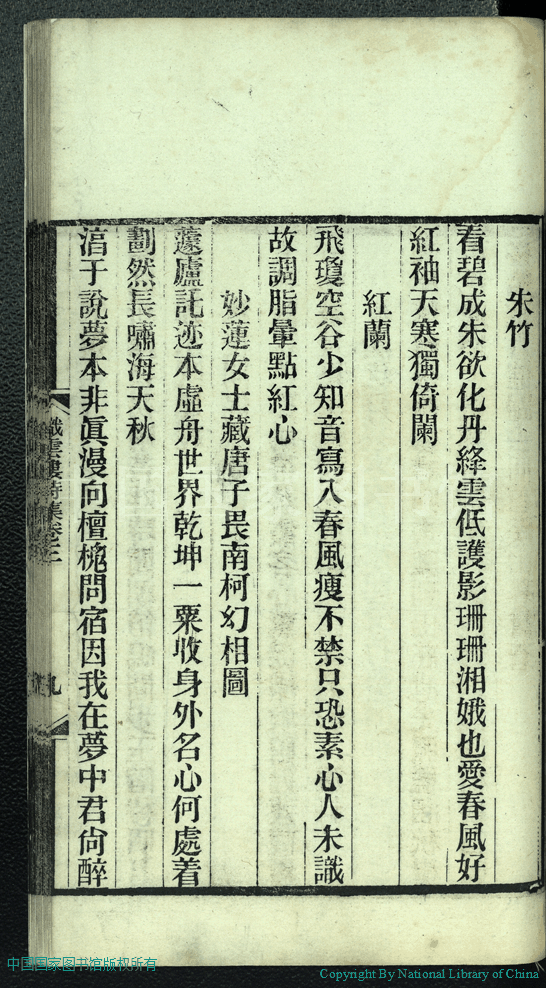 朱竹
看碧成朱欲化丹絳雲低護影珊珊湘娥也愛春風好
紅袖天寒獨倚闌
紅蘭
飛瓊空谷少知音寫入春風瘦不禁只恐素心人未識
故調脂暈點紅心
妙蓮女士藏唐子畏南柯幻相圖
蘧廬託迹本虛舟世界乾坤一粟收身外名心何處着
劃然長嘯海天秋
淳于說夢本非眞漫向檀槐問宿因我在夢中君尙醉
織雲樓詩集卷三
九
中国国家图书馆版权所有
Copyright By National Library of China